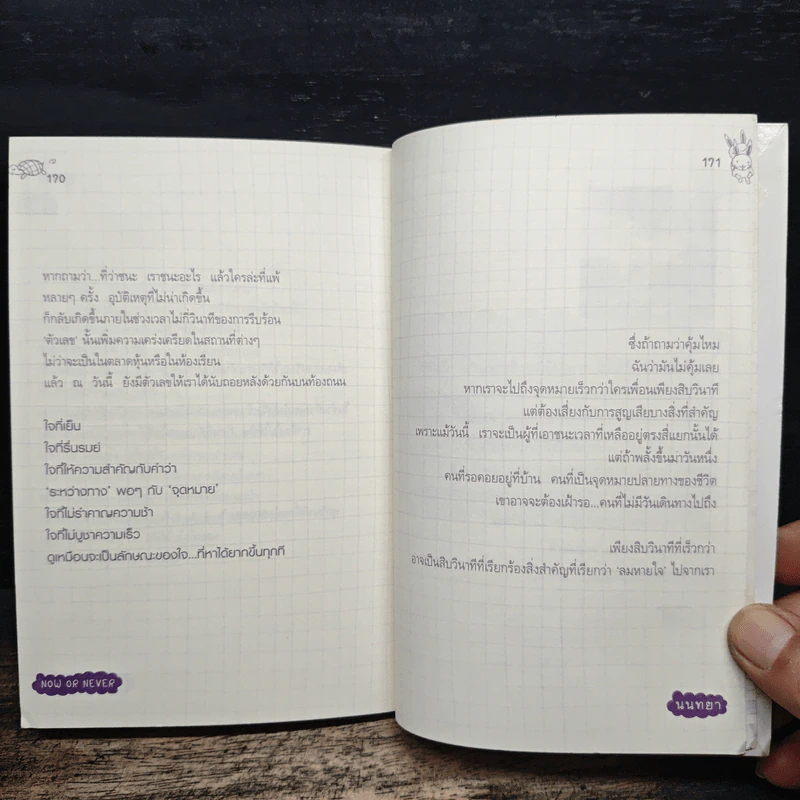 170
หากถามว่า...ที่ว่าชนะ เราชนะอะไร แล้วใครล่ะที่แพ้
หลายๆ ครั้ง อุบัติเหตุที่ไม่น่าเกิดขึ้น
ก็กลับเกิดขึ้นภายในช่วงเวลาไม่กี่วินาทีของการรีบร้อน
'ตัวเลข' นั้นเพิ่มความเคร่งเครียดในสถานที่ต่างๆ
ไม่ว่าจะเป็นในตลาดหุ้นหรือในห้องเรียน
แล้ว ณ วันนี้ ยังมีตัวเลขให้เราได้นับถอยหลังด้วยกันบนท้องถนน
ใจที่เย็น
ใจที่รื่นรมย์
ใจที่ให้ความสำคัญกับคำว่า
'ระหว่างทาง' พอๆ กับ 'จุดหมาย'
ใจที่ไม่รำคาญความช้า
ใจที่ไม่บูชาความเร็ว
ดูเหมือนจะเป็นลักษณะของใจ...ที่หาได้ยากขึ้นทุกที
NOW OR NEVER
171
ซึ่งถ้าถามว่าคุ้มไหม
ฉันว่ามันไม่คุ้มเลย
หากเราจะไปถึงจุดหมายเร็วกว่าใครเพื่อนเพียงสิบวินาที
แต่ต้องเสี่ยงกับการสูญเสียบางสิ่งที่สำคัญ
เพราะแม้วันนี้ เราจะเป็นผู้ที่เอาชนะเวลาที่เหลืออยู่ตรงสี่แยกนั้นได้
แต่ถ้าพลั้งขึ้นมาวันหนึ่ง
คนที่รอคอยอยู่ที่บ้าน คนที่เป็นจุดหมายปลายทางของชีวิต
เขาอาจจะต้องเฝ้ารอ...คนที่ไม่มีวันเดินทางไปถึง
เพียงสิบวินาทีที่เร็วกว่า
อาจเป็นสิบวินาทีที่เรียกร้องสิ่งสำคัญที่เรียกว่า 'ลมหายใจ' ไปจากเรา
นนทยา